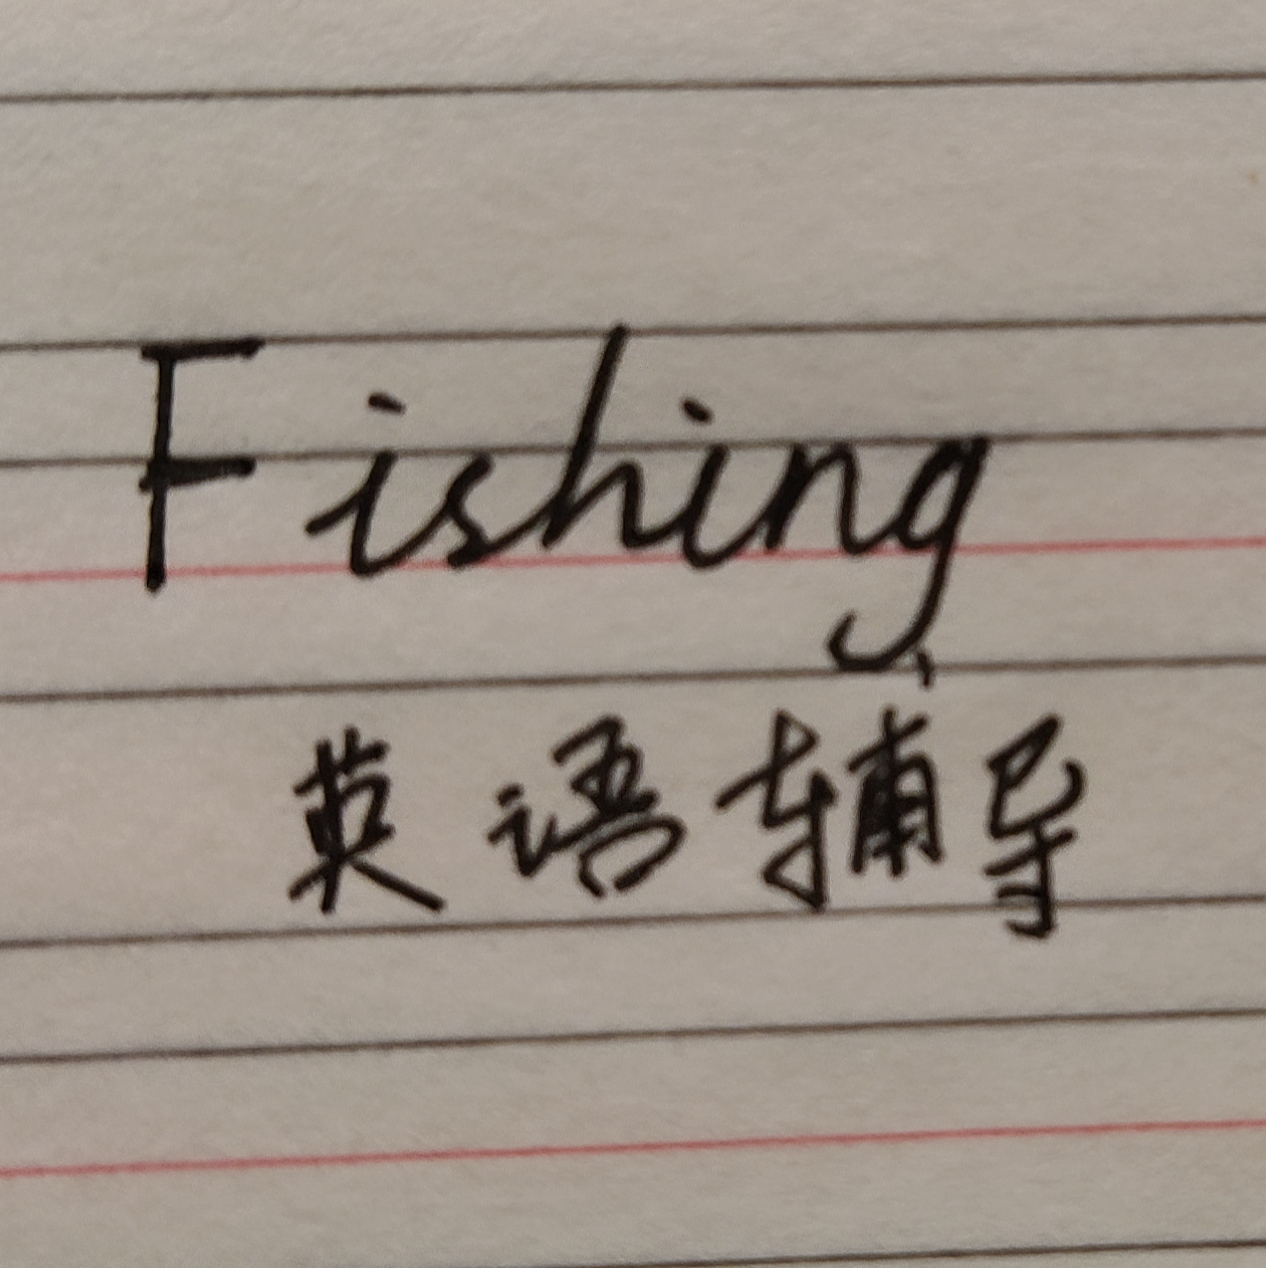 Fishing
英语辅导